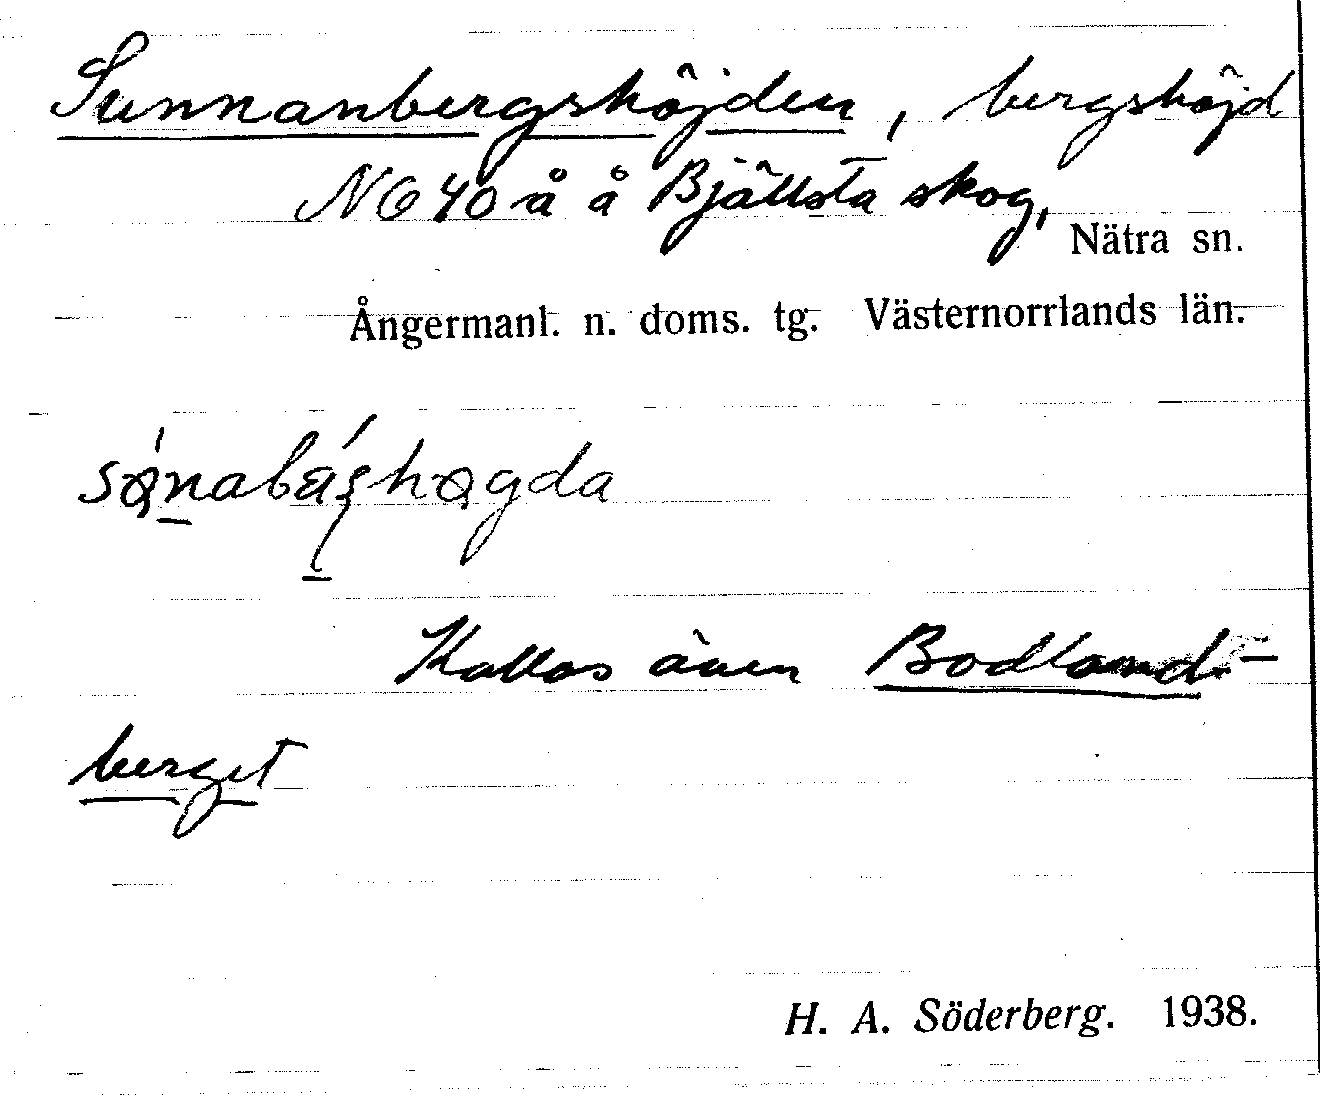 Sunnanbergshöjden, bergshöjd
NO 40 å å Bjällsta skog,
Nätra sn.
Ångermanl. n. doms. tg. Västernorrlands län.
Kallas även Bodland-
berget
H. A. Söderberg. 1938.